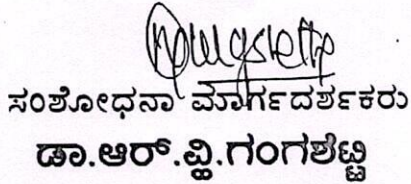 ಸಂಶೋಧನಾ ಮಾರ್ಗದರ್ಶಕರು
ಡಾ.ಆರ್.ವ್ಹಿ.ಗಂಗಶೆಟ್ಟಿ